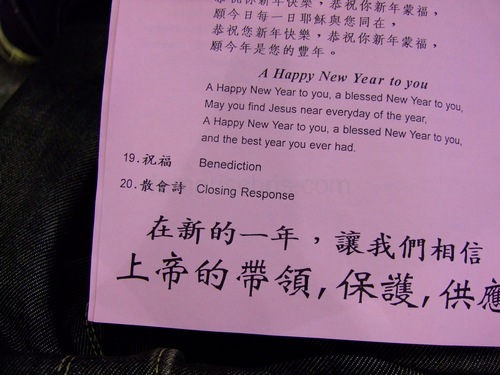 恭祝你新年快樂，恭祝你新年蒙福，
願今日每一日耶穌與您同在，
恭祝您新年快樂，恭祝你新年蒙福，
願今年是您的豐年。
A Happy New Year to you
A Happy New Year to you, a blessed New Year to you,
May you find Jesus near everyday of the year,
A Happy New Year to you, a blessed New Year to you,
and the best year you ever had.
19. 祝福 Benediction
20. 散會詩 Closing Response
在新的一年，讓我們相信
上帝的帶領,保護,供應